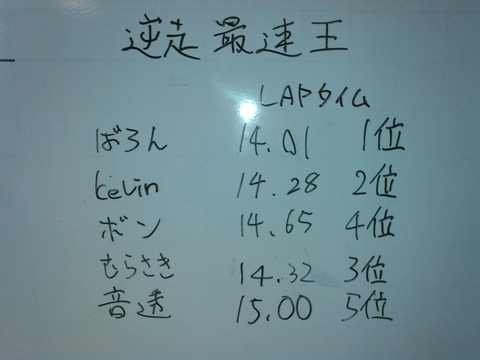 逆走 最速王
LAPタイム
ばろん 14.01 1位
kevin 14.28 2位
ボン 14.65 4位
むらさき 14.32 3位
音速 15.00 5位